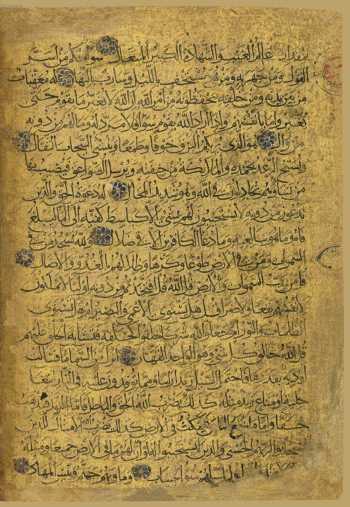 بمقدار عالم الغيب والشهادة الكبير المتعال سواء منكم من أسر
القول ومن جهر به ومن هو مستخف بالليل وسارب بالنهار له معقبات
من بين يديه ومن خلفه يحفظونه من أمر الله إن الله لا يغير ما بقوم حتى
يغيروا ما بأنفسهم وإذا أراد الله بقوم سوءا فلا مرد له وما لهم من دونه
من وال هو الذي يريكم البرق خوفا وطمعا وينشئ السحاب الثقال
ويسبح الرعد بحمده والملائكة من خيفته ويرسل الصواعق فيصيب بها
من يشاء وهم يجادلون في الله وهو شديد المحال له دعوة الحق والذين
يدعون من دونه لا يستجيبون لهم بشيء إلا كباسط كفيه إلى الماء ليبلغ
فاه وما هو ببالغه وما دعاء الكافرين إلا في ضلال ولله يسجد من في
السموات والأرض طوعا وكرها وظلالهم بالغدو والآصال قل
من رب السموات والأرض قل الله قل أفاتخذتم من دونه أولياء لا يملكون
لأنفسهم نفعا ولا ضرا قل هل يستوي الأعمى والبصير أم هل تستوي
الظلمات والنور أم جعلوا لله شركاء خلقوا كخلقه فتشابه الخلق عليهم
قل الله خالق كل شيء وهو الواحد القهار أنزل من السماء ماء فسالت
أودية بقدرها فاحتمل السيل زبدا رابيا ومما يوقدون عليه في النار ابتغاء
حلية أو متاع زبد مثله كذلك يضرب الله الحق والباطل فأما الزبد فيذهب
جفاء وأما ما ينفع الناس فيمكث في الأرض كذلك يضرب الله الأمثال للذين
استجابوا لربهم الحسنى والذين لم يستجيبوا له لو أن لهم ما في الأرض جميعا ومثله
أولئك لهم سوء الحساب ومأواهم جهنم وبئس المهاد